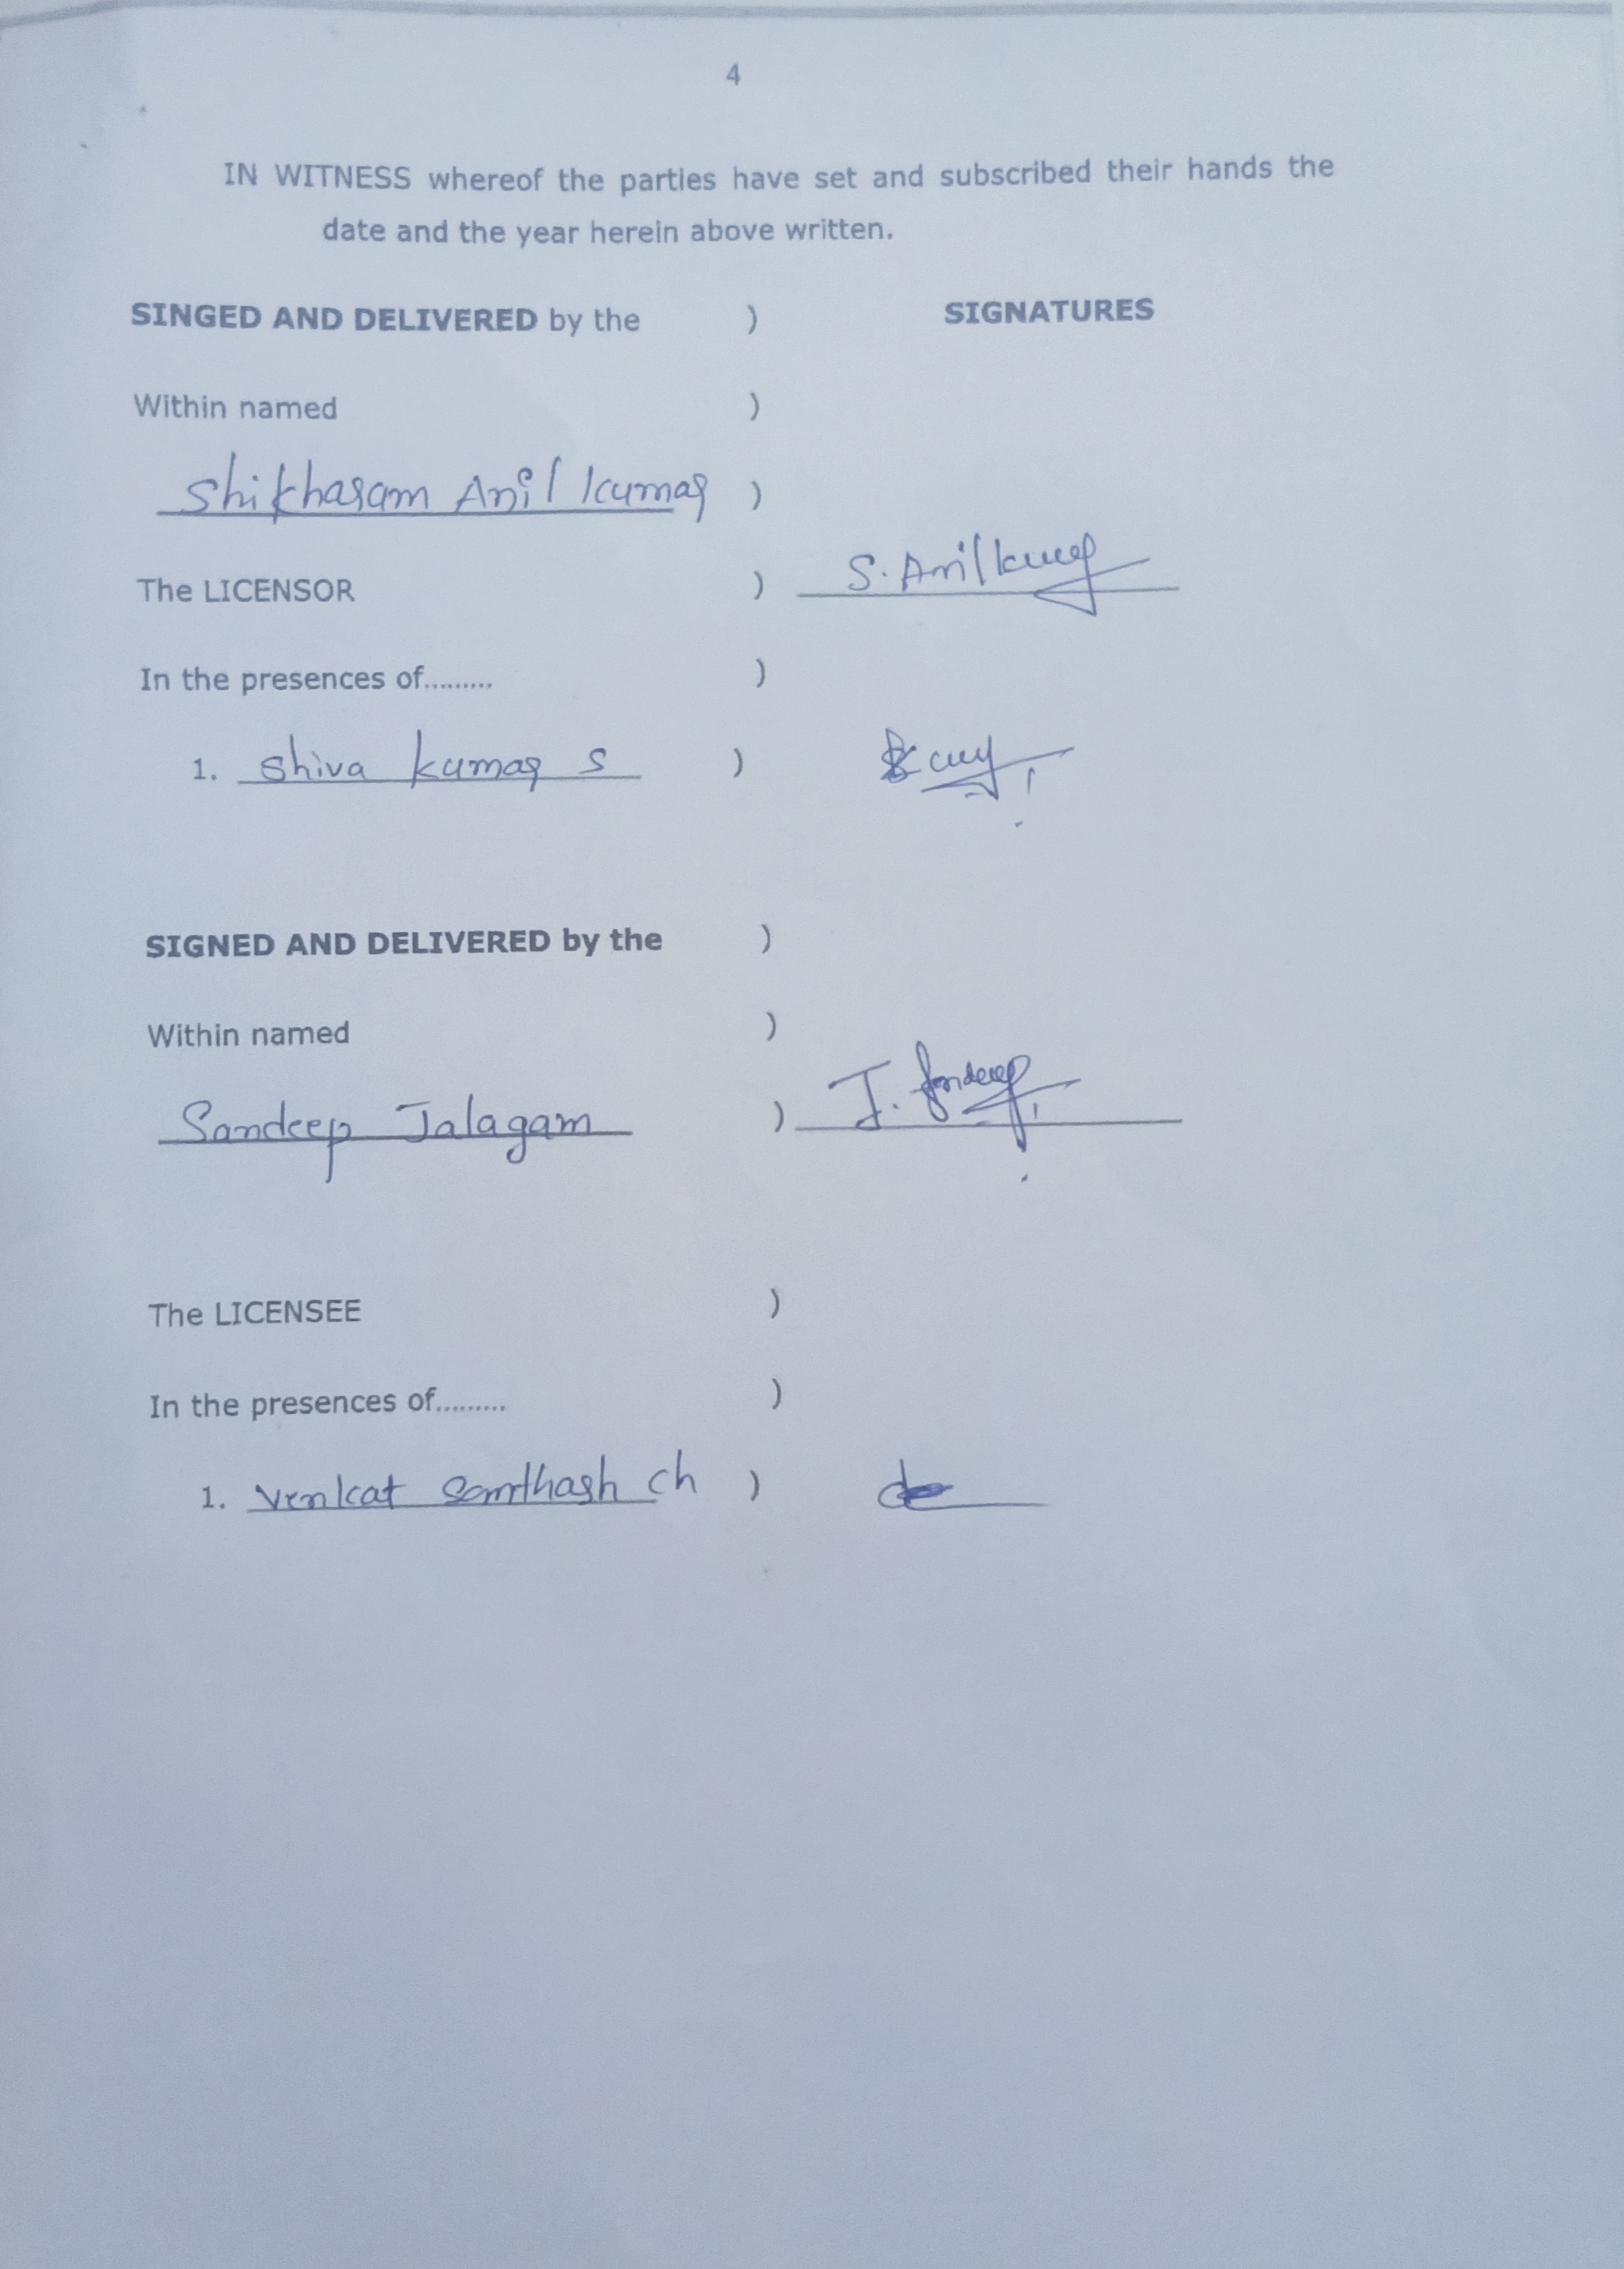 4
IN WITNESS whereof the parties have set and subscribed their hands the
date and the year herein above written.
SINGED AND DELIVERED by the ) SIGNATURES
Within named )
Shikharam Anil Kumar )
The LICENSOR ) S. Anilkumar
In the presences of......... )
1. Shiva kumar s )
SIGNED AND DELIVERED by the )
Within named )
Sandeep Jalagam ) J. Sandeep
The LICENSEE )
In the presences of......... )
1. Venkat Santhosh ch )